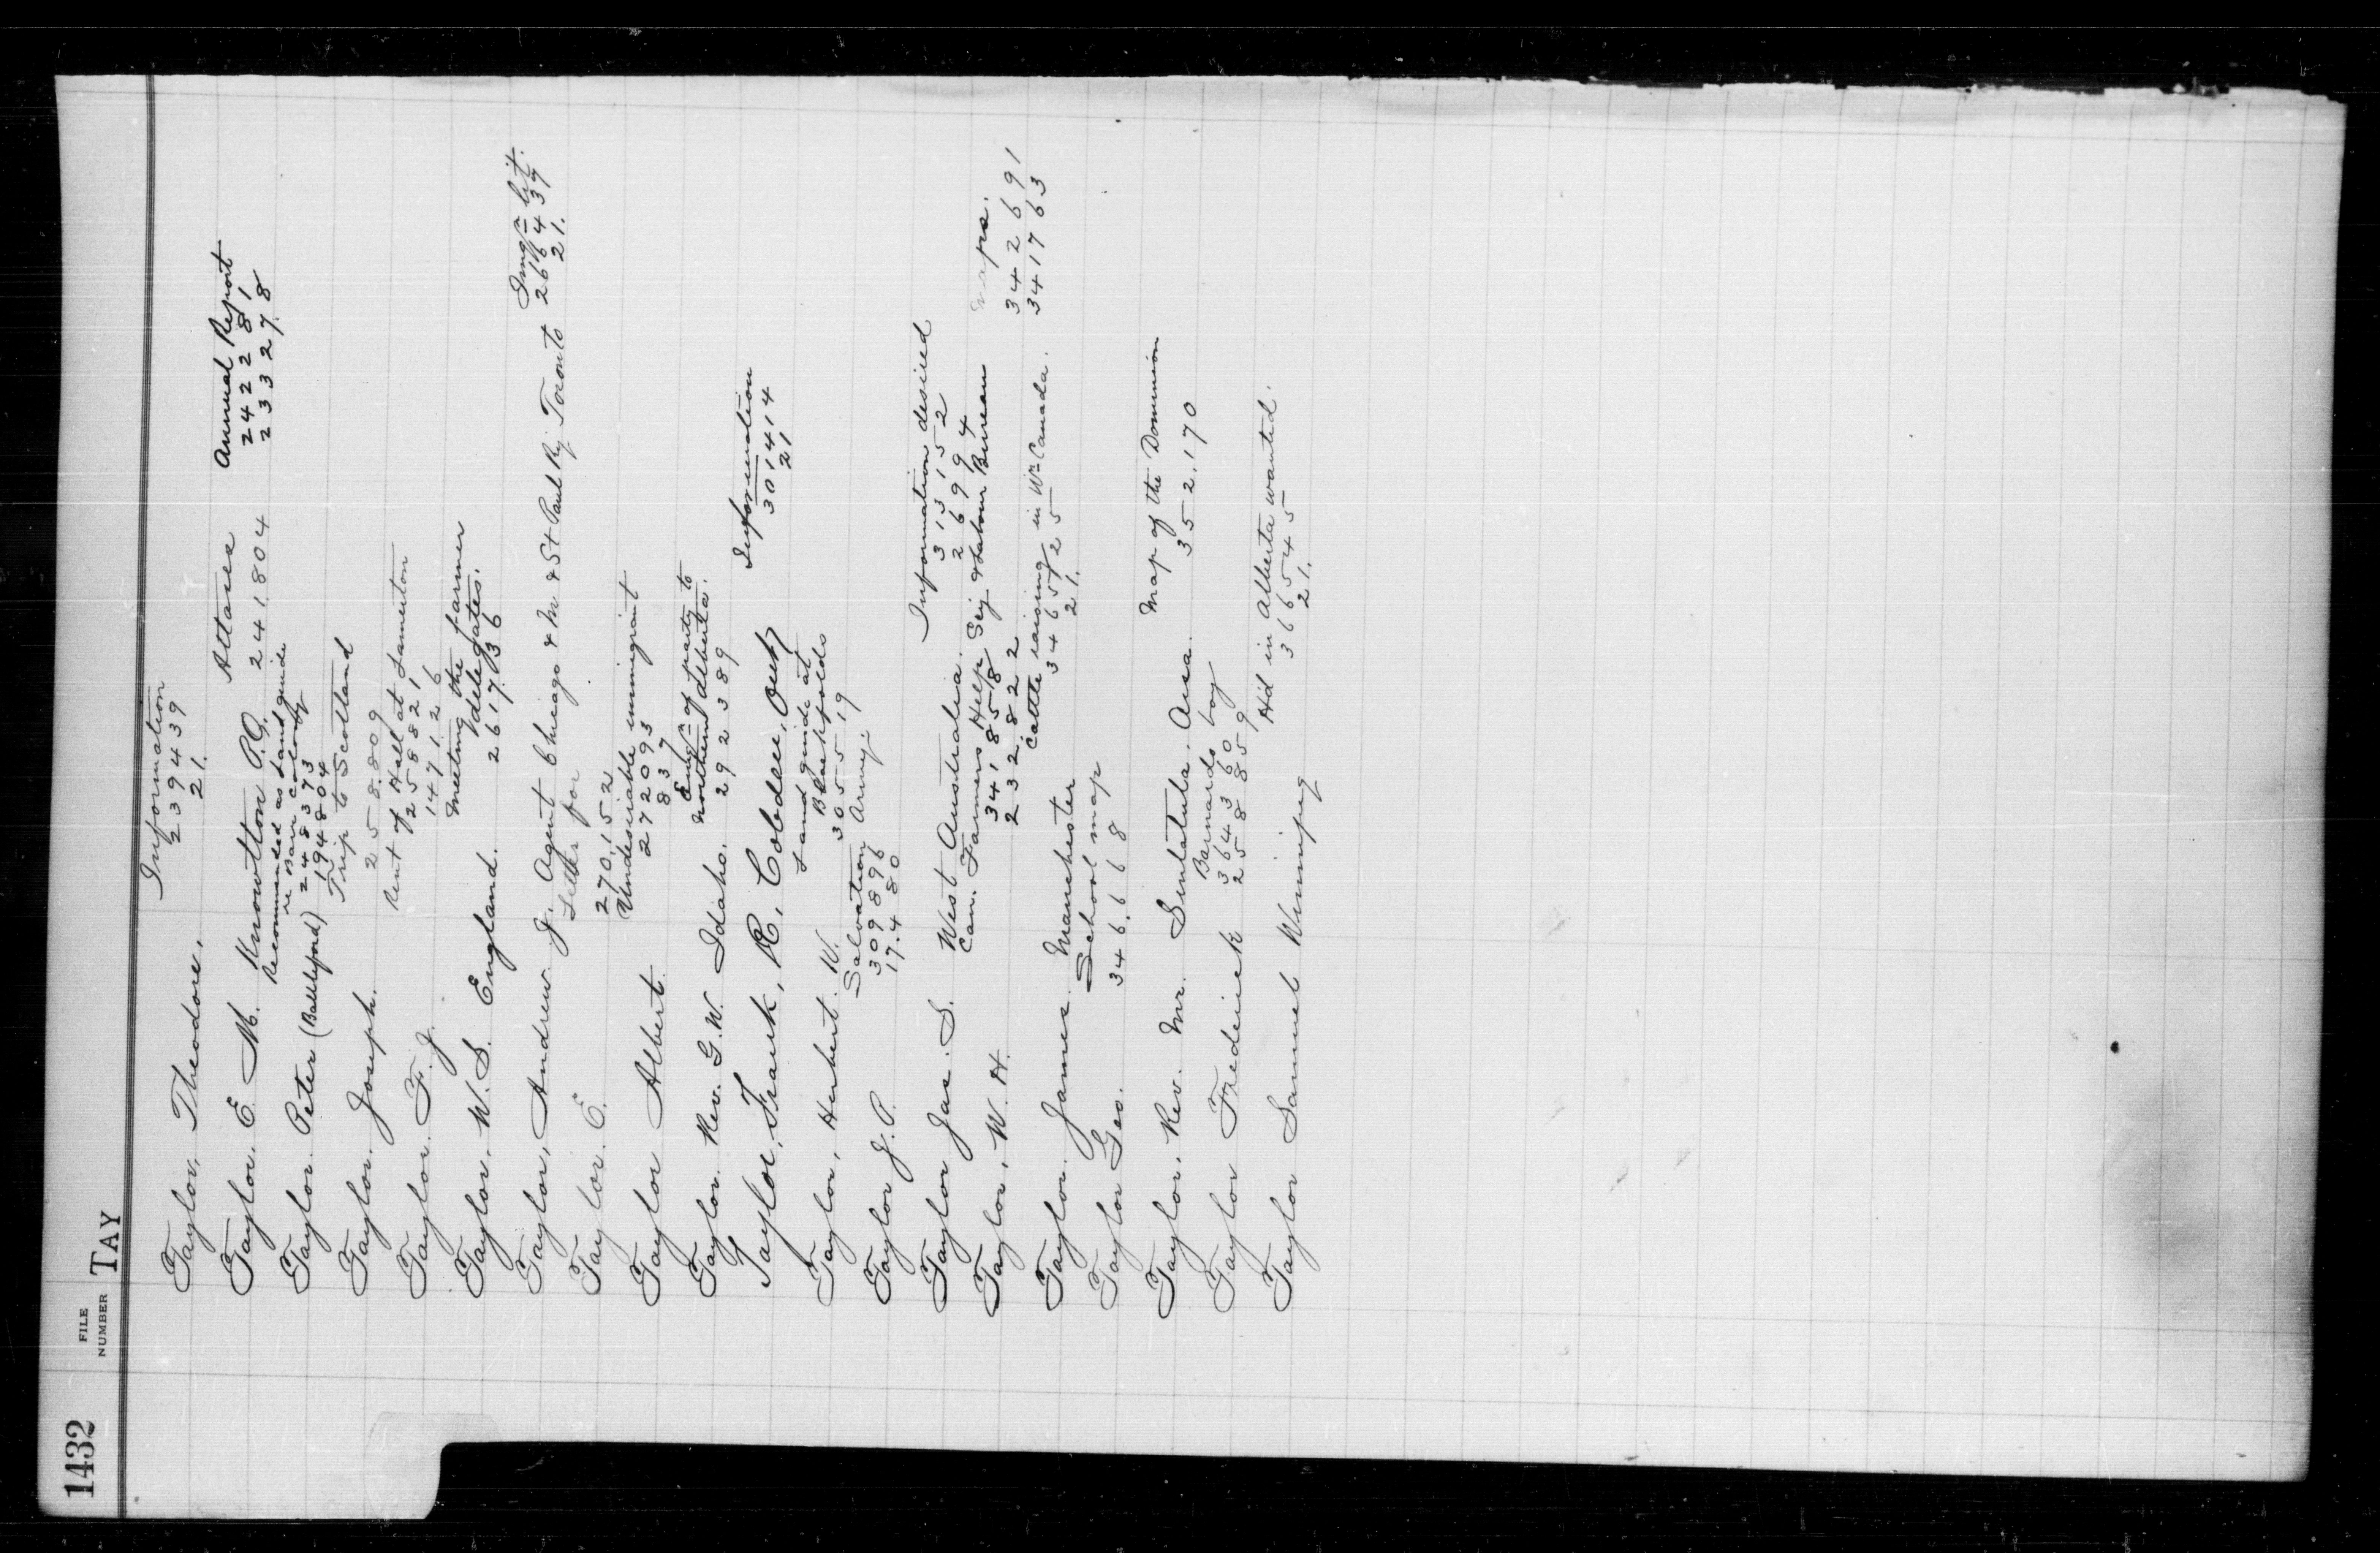 1432
FILE
NUMBER
TAY
Information
Taylor, Theodore, 239439
21.
Atlases Annual Report
Taylor. E. M. Knowlton P.Q. 241.804 242281
Recommended as Land guide 233278
re Barr colony
Taylor. Peter (Battleford) 248373
194804
Trip to Scotland
Taylor. Joseph. 258.809
Rent of Hall at
Taylor. F. J. 258821
147126
Meeting the farmer
delegates.
Taylor. W. S. England. 261736
Immgn Lit.
Taylor, Andrew J. Agent Chicago & M & St Paul Ry. Toronto 266437
21.
for
Taylor. E. 270,152
Undesirable immigrant
Taylor Albert. 272093
837
of party to
Northern Alberta.
Taylor. Rev. G. W. Idaho. 292389
Information
Taylor, Frank, R, Cobden, Ont, 301414
21
Land guide at
Taylor, Herbert. W. 305519
Salvation Army.
Taylor J. P. 309896
17.480
Information desired
Taylor Jas. S. West Australia. 313152
26994
Can. Farmers Help Sej & Labour Bureau maps.
Taylor, W. H. 341858 342691
232.822 341763
Cattle raising in Wn Canada.
Taylor. James. Manchester 346525
21.
School map
Taylor Geo. 346.668
Map of the Dominion
Taylor. Rev. Mr. Sintaluta. Assa. 352.170
Barnardo boy
Taylor Frederick 364360
258859
Hd in Alberta wanted.
Taylor Samuel Winnipeg 366545
21.